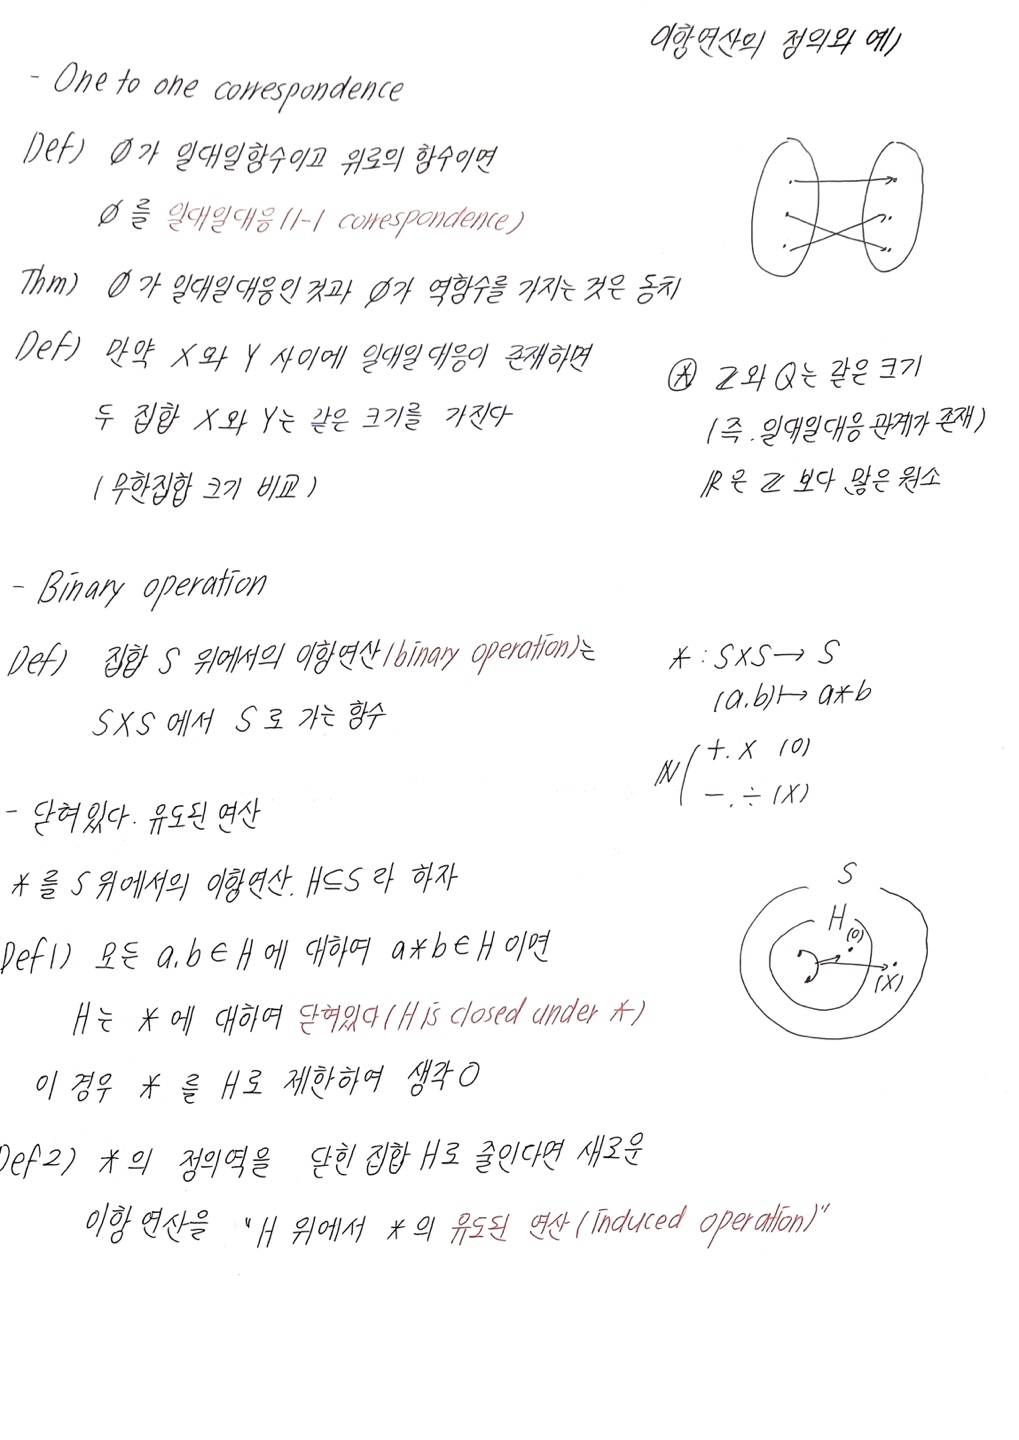 이항연산의 정의와 예)
- One to one correspondence
Def) ∅가 일대일함수이고 위로의 함수이면
∅를 일대일대응(1-1 correspondence)
Thm) ∅가 일대일대응인 것과 ∅가 역함수를 가지는 것은 동치
Def) 만약 X와 Y 사이에 일대일 대응이 존재하면
두 집합 X와 Y는 같은 크기를 가진다
(무한집합 크기 비교)
⊛ ℤ와 Q는 같은 크기
(즉. 일대일대응 관계가 존재)
ℝ은 ℤ 보다 많은 원소
- Binary operation
Def) 집합 S 위에서의 이항연산(binary operation)는
S×S 에서 S로 가는 함수
* : S×S → S
(a.b) ↦ a*b
ℕ( +. × (O)
-. ÷ (X)
- 닫혀있다. 유도된 연산
*를 S 위에서의 이항연산. H⊆S 라 하자
Def1) 모든 a.b ∈ H 에 대하여 a*b ∈ H 이면
H는 * 에 대하여 닫혀있다(H is closed under *)
이 경우 * 를 H로 제한하여 생각 O
S
H
(O)
(X)
Def2) *의 정의역을 닫힌 집합 H로 줄인다면 새로운
이항 연산을 "H 위에서 *의 유도된 연산(induced operation)"